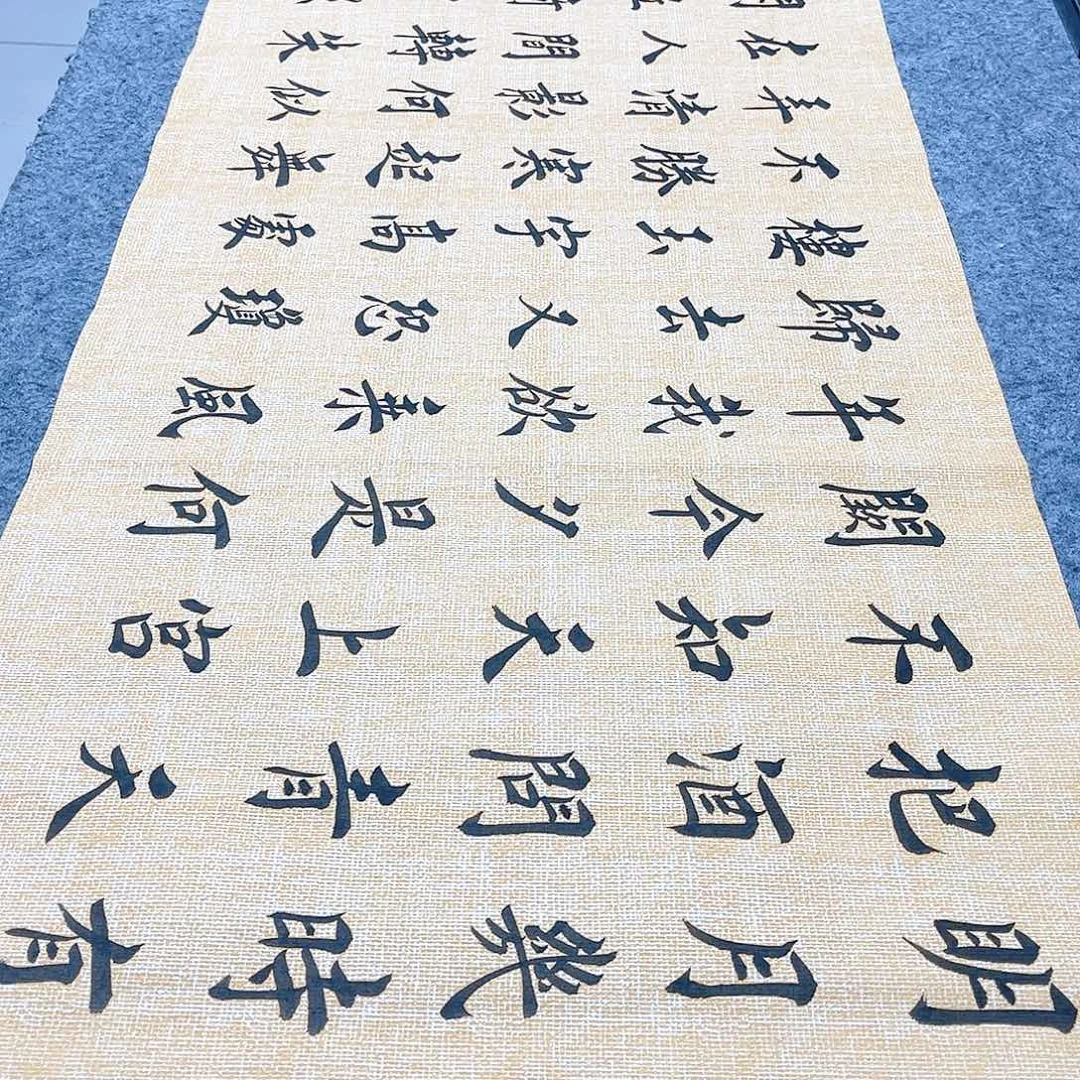 明月幾時有
把酒問青天
不知天上宮
闕今夕是何
年我欲乘風
歸去又恐瓊
樓玉宇高處
不勝寒起舞
弄清影何似
在人間轉朱